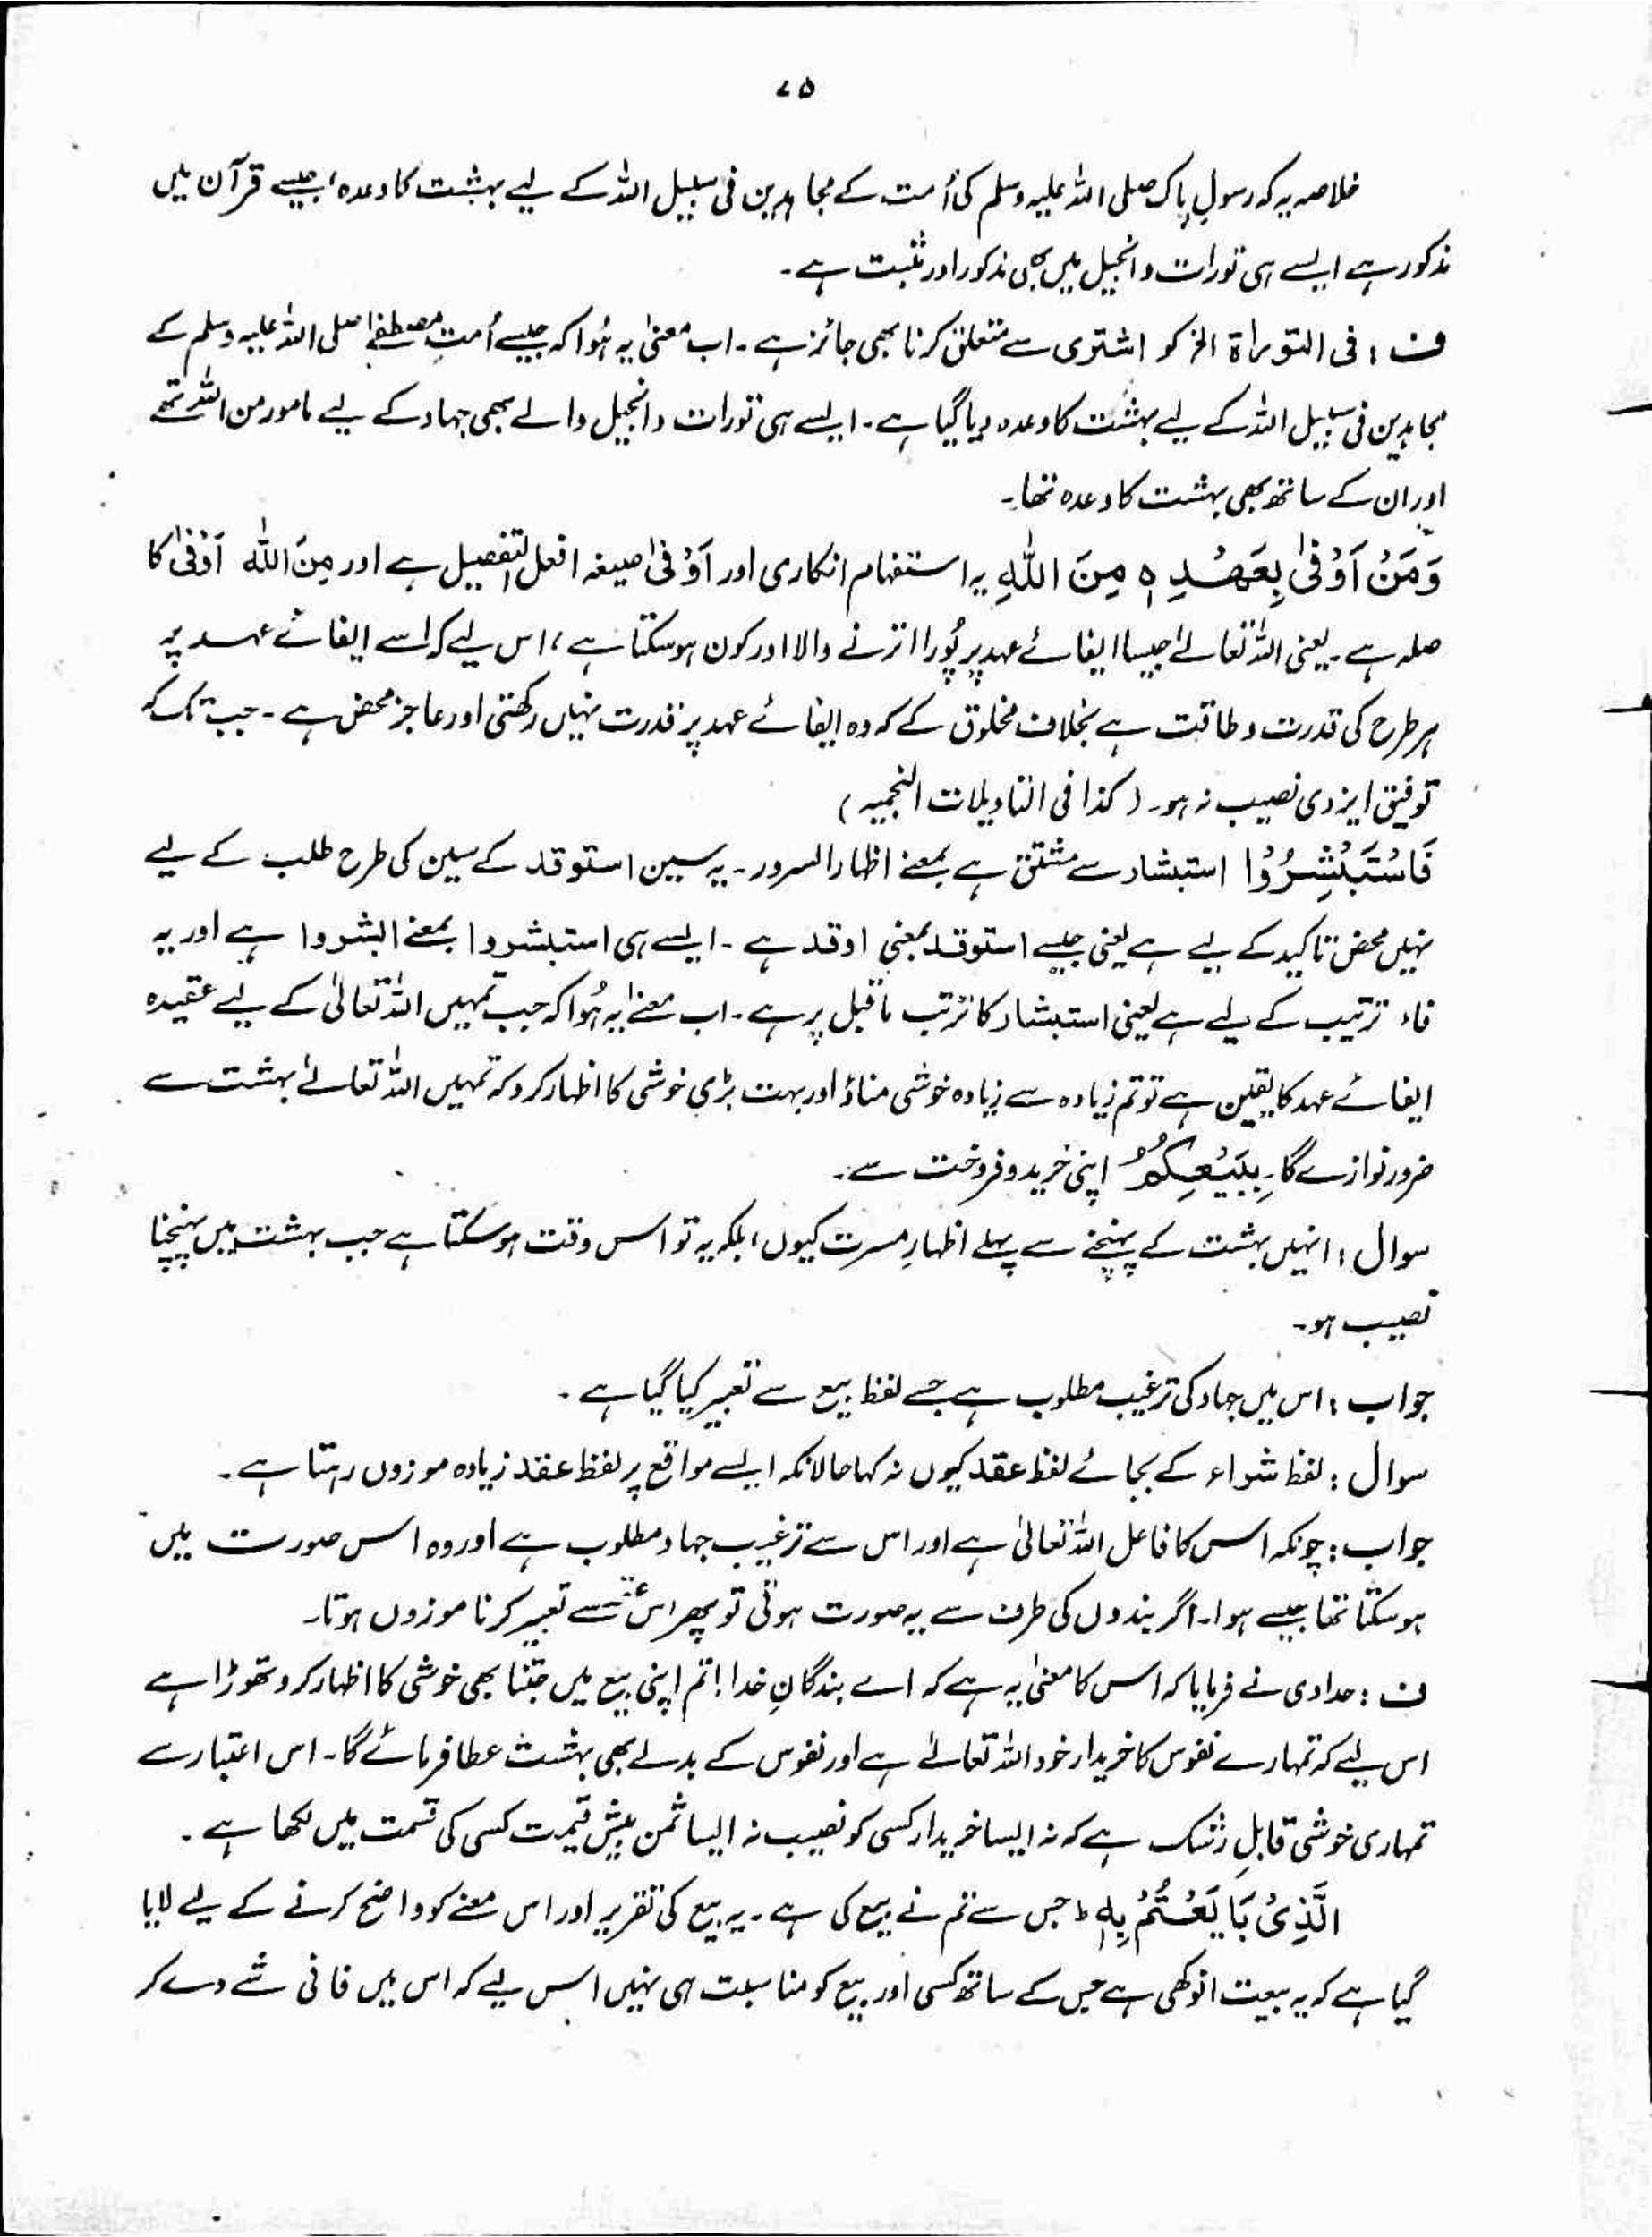 ۷۵
خلاصہ یہ کہ رسولِ پاک صلی اللہ علیہ وسلم کی اُمت کے مجاہدین فی سبیل اللہ کے لیے بہشت کا وعدہ، جیسے قرآن میں
مذکور ہے ایسے ہی تورات و انجیل میں بھی مذکور اور مثبت ہے۔
ف : فی التوراۃ الخ کو اشتری سے متعلق کرنا بھی جائز ہے۔ اب معنیٰ یہ ہُوا کہ جیسے اُمتِ مصطفےٰ صلی اللہ علیہ وسلم کے
مجاہدین فی سبیل اللہ کے لیے بہشت کا وعدہ دیا گیا ہے۔ ایسے ہی تورات و انجیل والے بھی جہاد کے لیے مامور من اللہ تھے
اور ان کے ساتھ بھی بہشت کا وعدہ تھا۔
وَمَنْ اَوْفٰی بِعَھْدِہٖ مِنَ اللّٰہِ یہ استفہام انکاری اور اَوْفیٰ صیغہ افعل التفصیل ہے اور مِنَ اللہ اَوْفیٰ کا
صلہ ہے۔ یعنی اللہ تعالےٰ جیسا ایفائے عہد پر پُورا اترنے والا اور کون ہو سکتا ہے، اس لیے کہ اسے ایفائے عہد پہ
ہر طرح کی قدرت و طاقت ہے بخلاف مخلوق کے کہ وہ ایفائے عہد پر قدرت نہیں رکھتی اور عاجز محض ہے۔ جب تک کہ
توفیق ایزدی نصیب نہ ہو۔ (کذا فی التاویلات النجمیہ)
فَاسْتَبْشِرُوْا استبشار سے مشتق ہے بمعنے اظہار السرور۔ یہ سین استوقد کے سین کی طرح طلب کے لیے
نہیں محض تاکید کے لیے ہے یعنی جیسے استوقد بمعنی اوقد ہے۔ ایسے ہی استبشروا بمعنے ابشروا ہے اور یہ
فاء ترتیب کے لیے ہے یعنی استبشار کا ترتب ماقبل پر ہے۔ اب معنےٰ یہ ہُوا کہ جب تمہیں اللہ تعالیٰ کے لیے عقیدہ
ایفائے عہد کا یقین ہے تو تم زیادہ سے زیادہ خوشی مناؤ اور بہت بڑی خوشی کا اظہار کرو کہ تمہیں اللہ تعالےٰ بہشت سے
ضرور نوازے گا۔ بِبَیْعِکُمُ اپنی خرید و فروخت سے۔
سوال : انہیں بہشت کے پہنچنے سے پہلے اظہارِ مسرت کیوں، بلکہ یہ تو اس وقت ہو سکتا ہے جب بہشت میں پہنچنا
نصیب ہو۔
جواب : اس میں جہاد کی ترغیب مطلوب ہے جسے لفظ بیع سے تعبیر کیا گیا ہے۔
سوال : لفظ شراء کے بجائے لفظ عقد کیوں نہ کہا حالانکہ ایسے مواقع پر لفظ عقد زیادہ موزوں رہتا ہے۔
جواب : چونکہ اس کا فاعل اللہ تعالیٰ ہے اور اس سے ترغیب جہاد مطلوب ہے اور وہ اس صورت میں
ہو سکتا تھا جیسے ہوا۔ اگر بندوں کی طرف سے یہ صورت ہوتی تو پھر اس سے تعبیر کرنا موزوں ہوتا۔
ف : حدادی نے فرمایا کہ اس کا معنیٰ یہ ہے کہ اے بندگانِ خدا! تم اپنی بیع میں جتنا بھی خوشی کا اظہار کرو تھوڑا ہے
اس لیے کہ تمہارے نفوس کا خریدار خود اللہ تعالےٰ ہے اور نفوس کے بدلے بھی بہشت عطا فرمائے گا۔ اس اعتبار سے
تمہاری خوشی قابلِ رشک ہے کہ نہ ایسا خریدار کسی کو نصیب نہ ایسا ثمن بیش قیمت کسی کی قسمت میں لکھا ہے۔
الَّذِیْ بَایَعْتُمْ بِہٖ ط جس سے تم نے بیع کی ہے۔ یہ بیع کی تقریر اور اس معنے کو واضح کرنے کے لیے لایا
گیا ہے کہ یہ بیعت انوکھی ہے جس کے ساتھ کسی اور بیع کو مناسبت ہی نہیں اس لیے کہ اس میں فانی شے دے کر